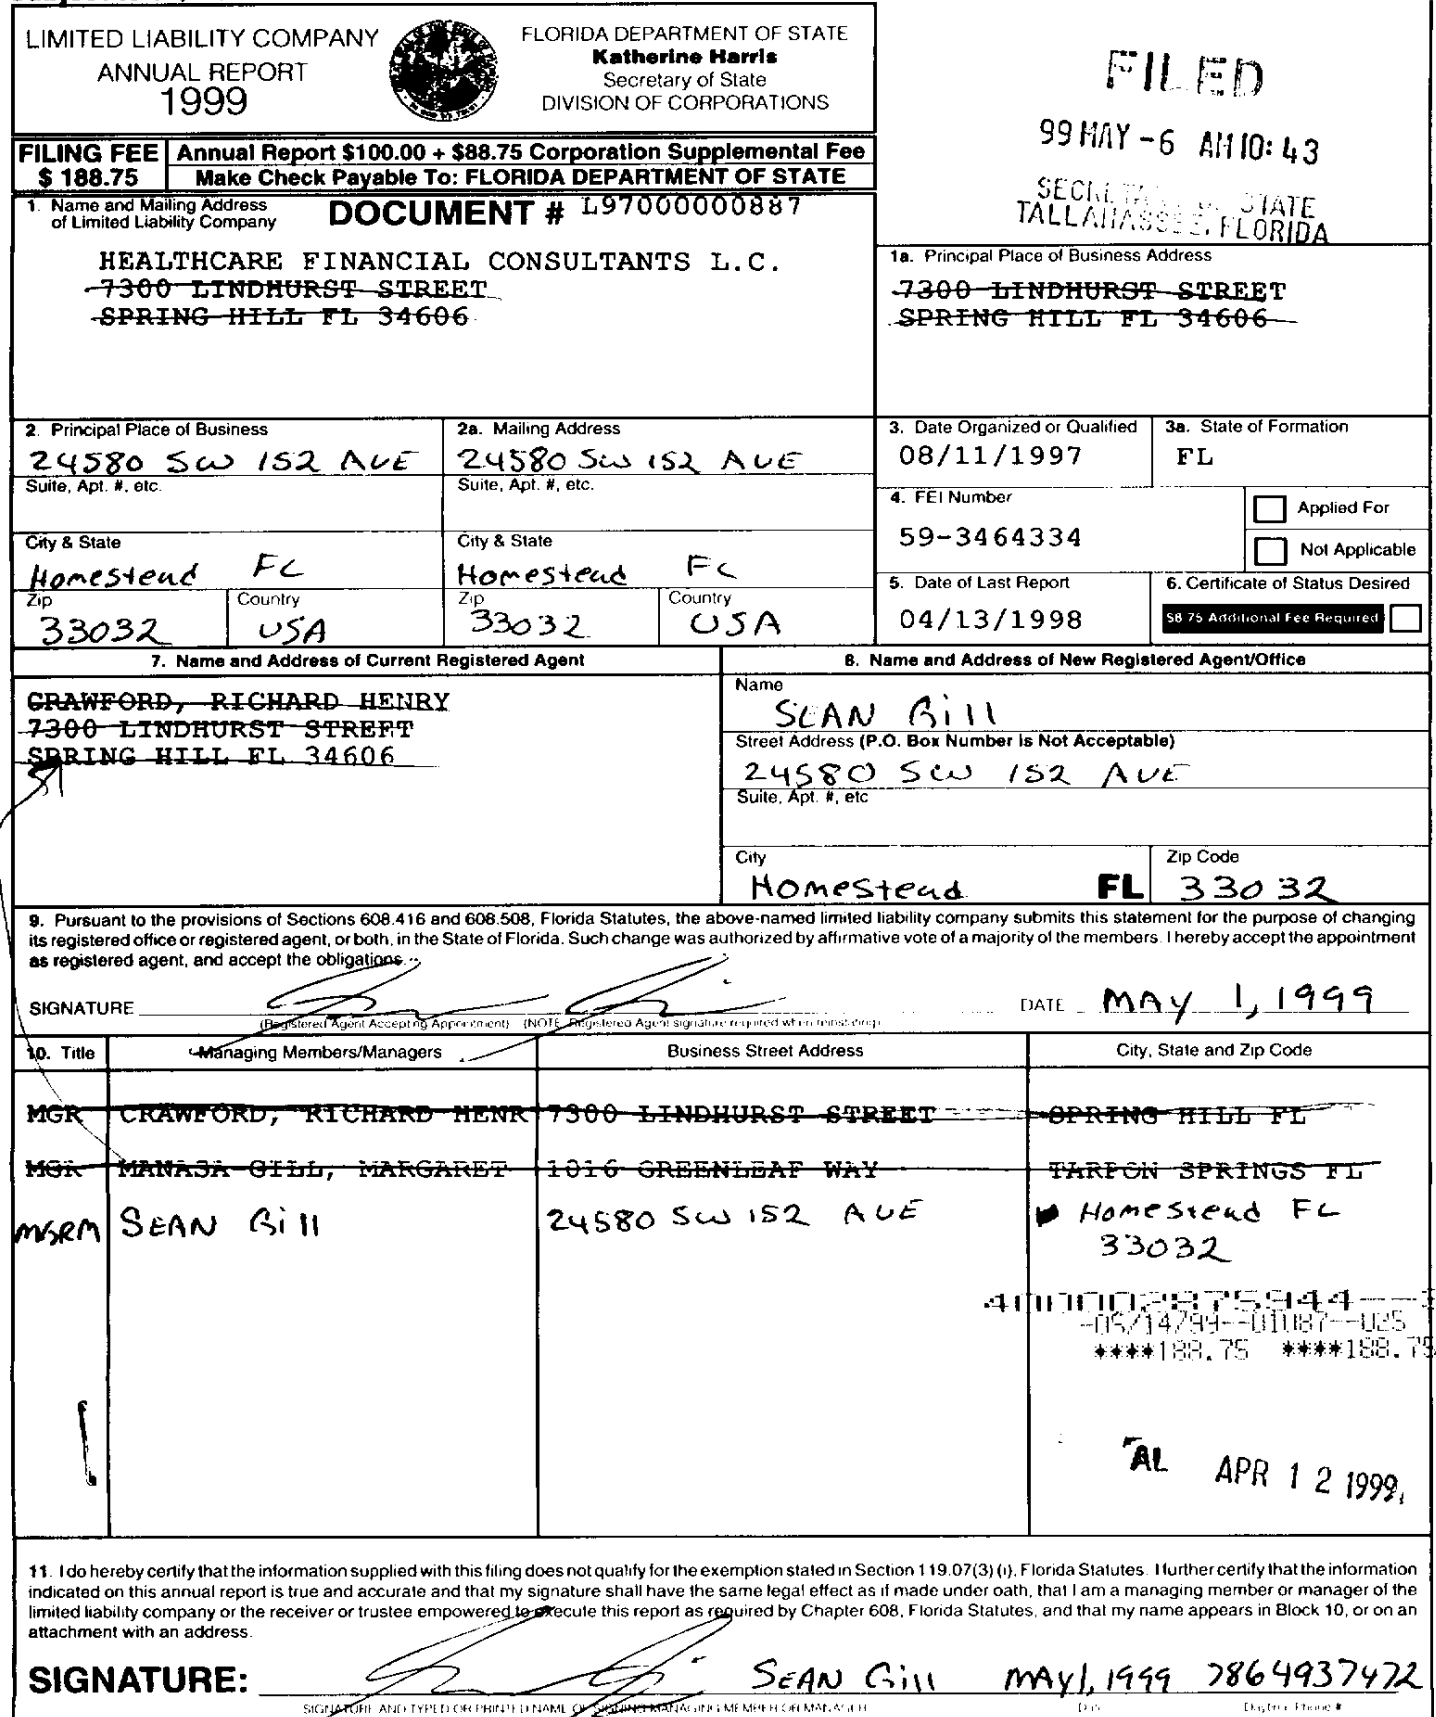 LIMITED LIABILITY COMPANY
ANNUAL REPORT
1999
FLORIDA DEPARTMENT OF STATE
Katherine Harris
Secretary of State
DIVISION OF CORPORATIONS
FILED
99 MAY -6 AM 10:43
SECRETARY OF STATE
TALLAHASSEE, FLORIDA
FILING FEE
$ 188.75
Annual Report $100.00 + $88.75 Corporation Supplemental Fee
Make Check Payable To: FLORIDA DEPARTMENT OF STATE
1. Name and Mailing Address
of Limited Liability Company
DOCUMENT # L97000000887
HEALTHCARE FINANCIAL CONSULTANTS L.C.
7300 LINDHURST STREET
SPRING HILL FL 34606
1a. Principal Place of Business Address
7300 LINDHURST STREET
SPRING HILL FL 34606
2. Principal Place of Business
24580 SW 152 AVE
Suite, Apt. #, etc.
City & State
Homestead FL
Zip
33032
Country
USA
2a. Mailing Address
24580 SW 152 AVE
Suite, Apt. #, etc.
City & State
Homestead FL
Zip
33032
Country
USA
3. Date Organized or Qualified
08/11/1997
3a. State of Formation
FL
4. FEI Number
59-3464334
Applied For
Not Applicable
5. Date of Last Report
04/13/1998
6. Certificate of Status Desired
$8.75 Additional Fee Required
7. Name and Address of Current Registered Agent
CRAWFORD, RICHARD HENRY
7300 LINDHURST STREET
SPRING HILL FL 34606
8. Name and Address of New Registered Agent/Office
Name
SEAN Gill
Street Address (P.O. Box Number is Not Acceptable)
24580 SW 152 AVE
Suite, Apt. #, etc
City
Homestead FL
Zip Code
33032
9. Pursuant to the provisions of Sections 608.416 and 608.508, Florida Statutes, the above-named limited liability company submits this statement for the purpose of changing
its registered office or registered agent, or both, in the State of Florida. Such change was authorized by affirmative vote of a majority of the members. I hereby accept the appointment
as registered agent, and accept the obligations.
SIGNATURE
DATE MAY 1, 1999
(Registered Agent Accepting Appointment) (NOTE Registered Agent signature required when reinstating)
10. Title
Managing Members/Managers
Business Street Address
City, State and Zip Code
MGR CRAWFORD, RICHARD HENR 7300 LINDHURST STREET SPRING HILL FL
MGR MANASA GILL, MARGARET 1016 GREENLEAF WAY TARPON SPRINGS FL
MGRM SEAN Gill 24580 SW 152 AVE Homestead FL
33032
400002875944--3
-05/14/99--01087--025
****188.75 ****188.75
AL APR 12 1999
11. I do hereby certify that the information supplied with this filing does not qualify for the exemption stated in Section 119.07(3) (i), Florida Statutes. I further certify that the information
indicated on this annual report is true and accurate and that my signature shall have the same legal effect as if made under oath, that I am a managing member or manager of the
limited liability company or the receiver or trustee empowered to execute this report as required by Chapter 608, Florida Statutes, and that my name appears in Block 10, or on an
attachment with an address.
SIGNATURE: SEAN Gill MAY 1, 1999 7864937472
SIGNATURE AND TYPED OR PRINTED NAME OF SIGNING MANAGING MEMBER OR MANAGER
Date
Daytime Phone #